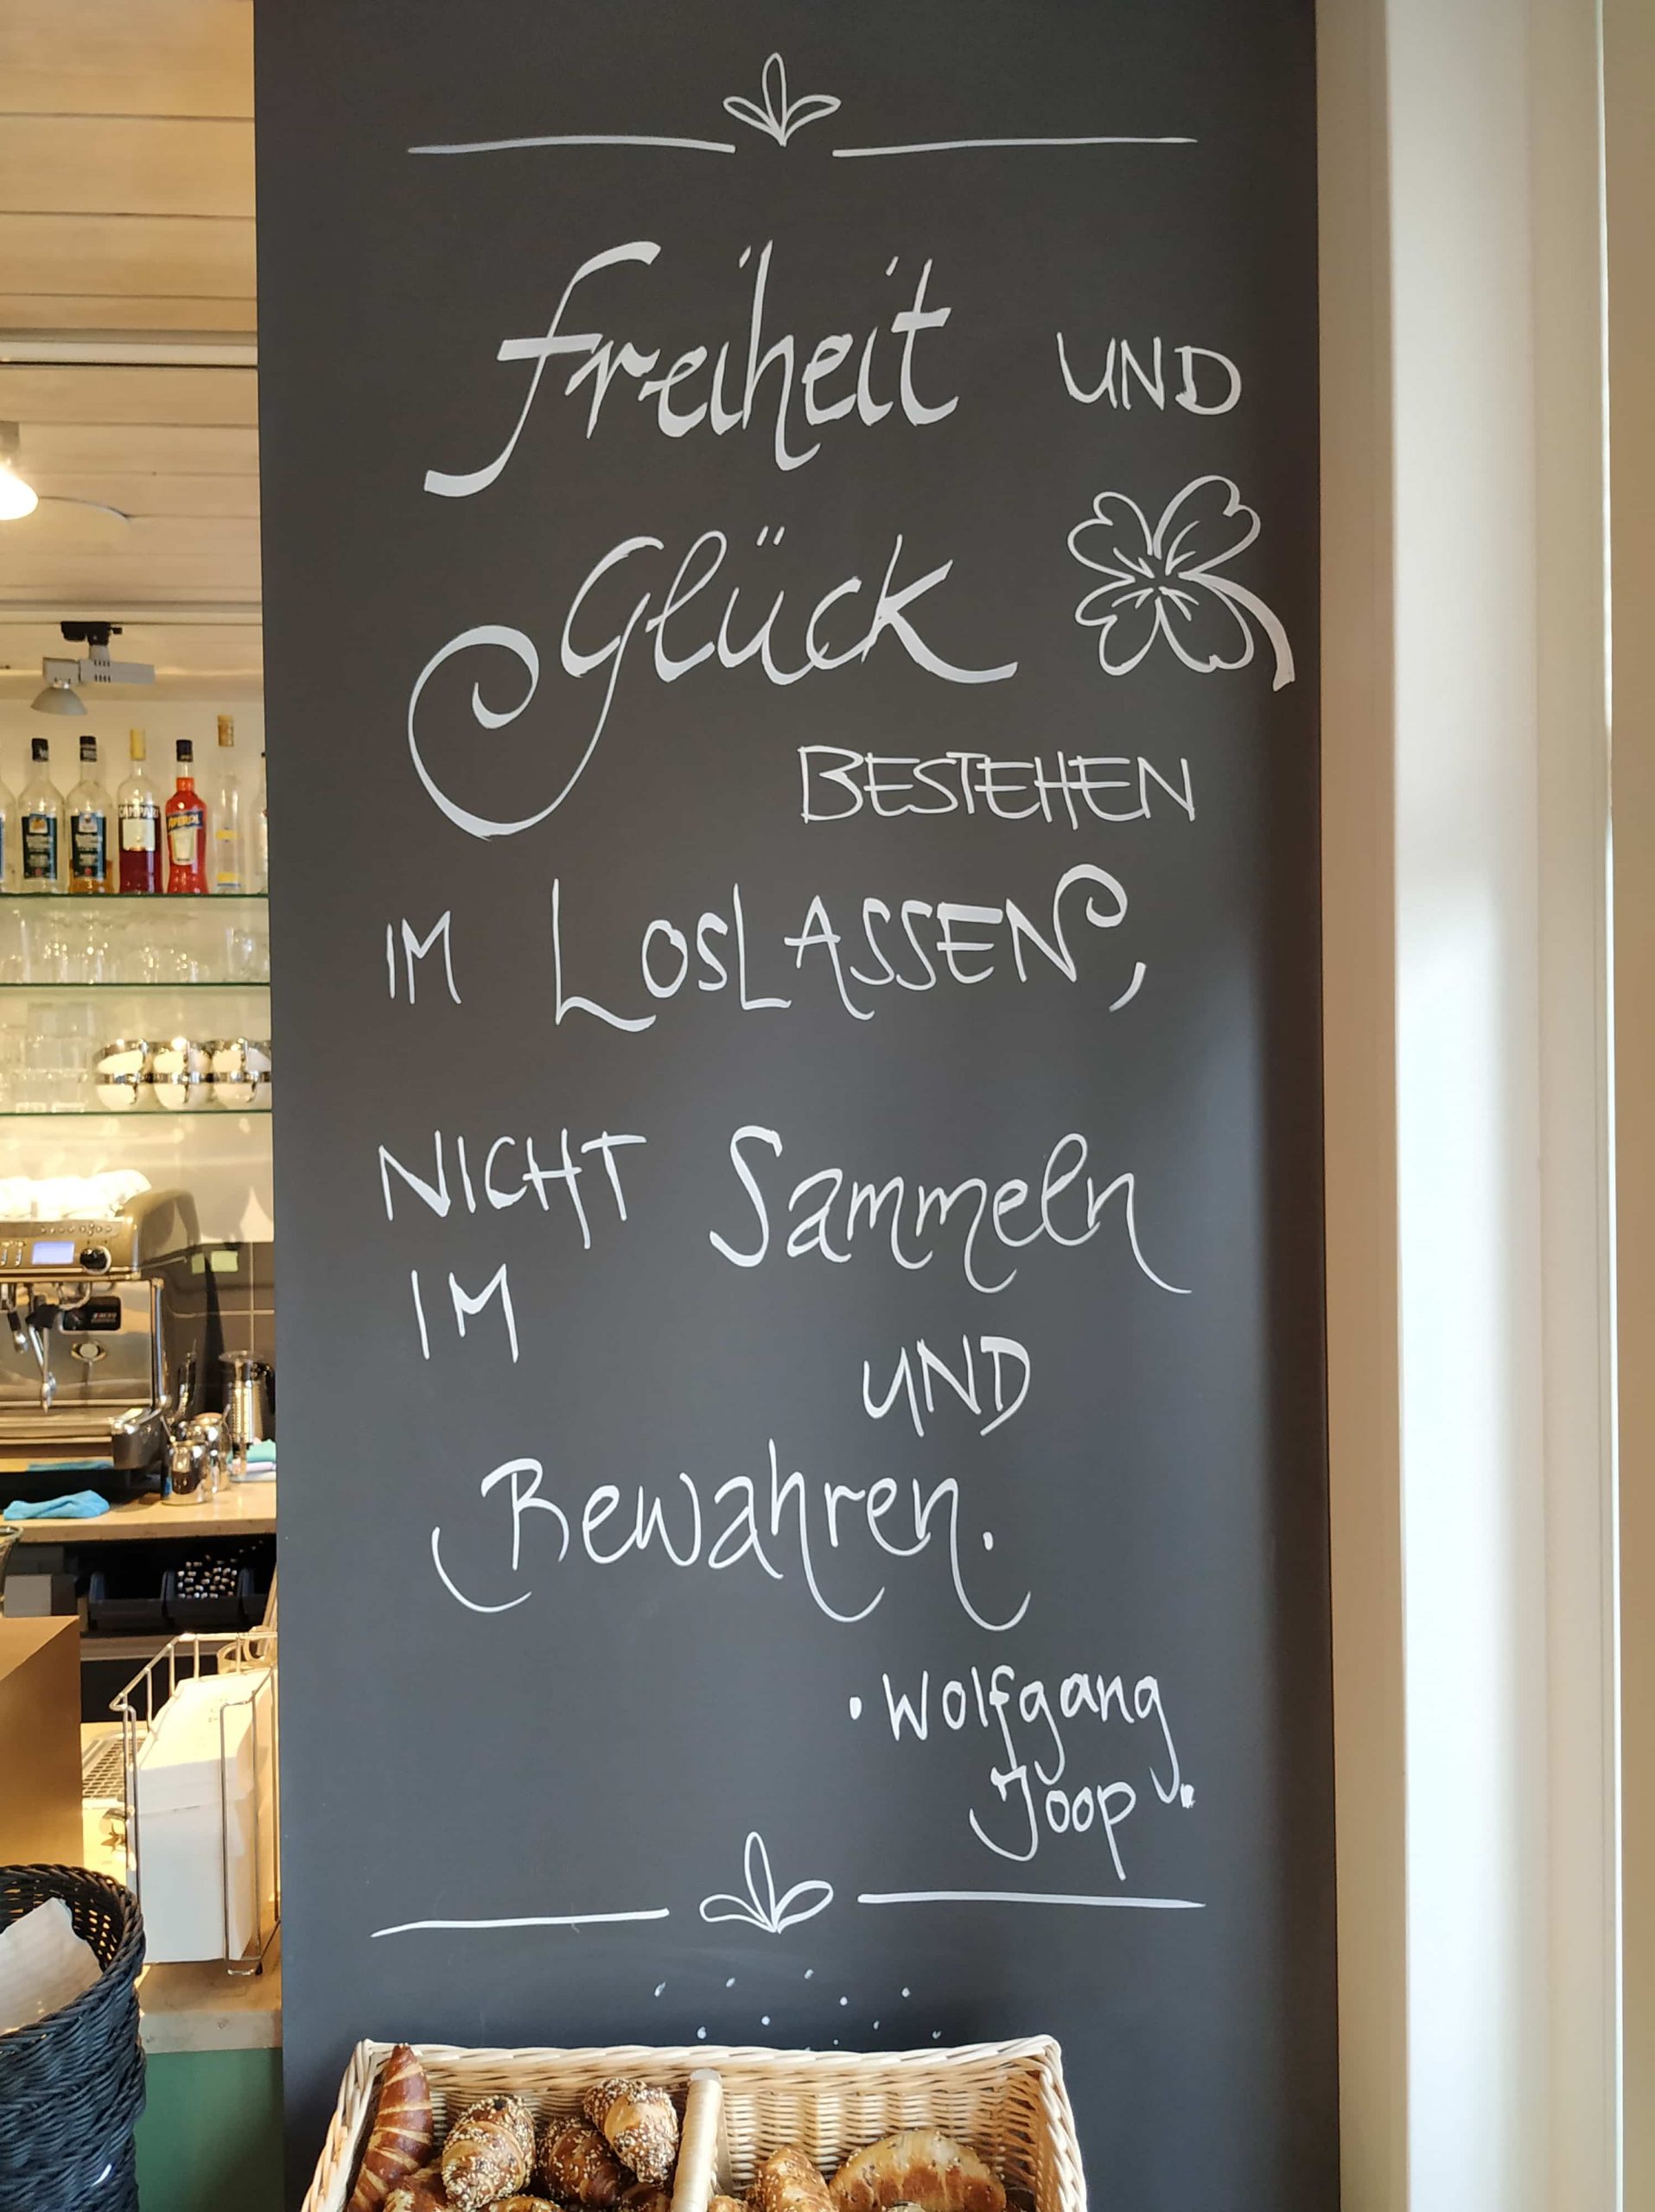 Freiheit UND
Glück
BESTEHEN
IM LOSLASSEN,
NICHT Sammeln
IM
UND
Bewahren.
· Wolfgang
Joop.
CAMPARI
APEROL